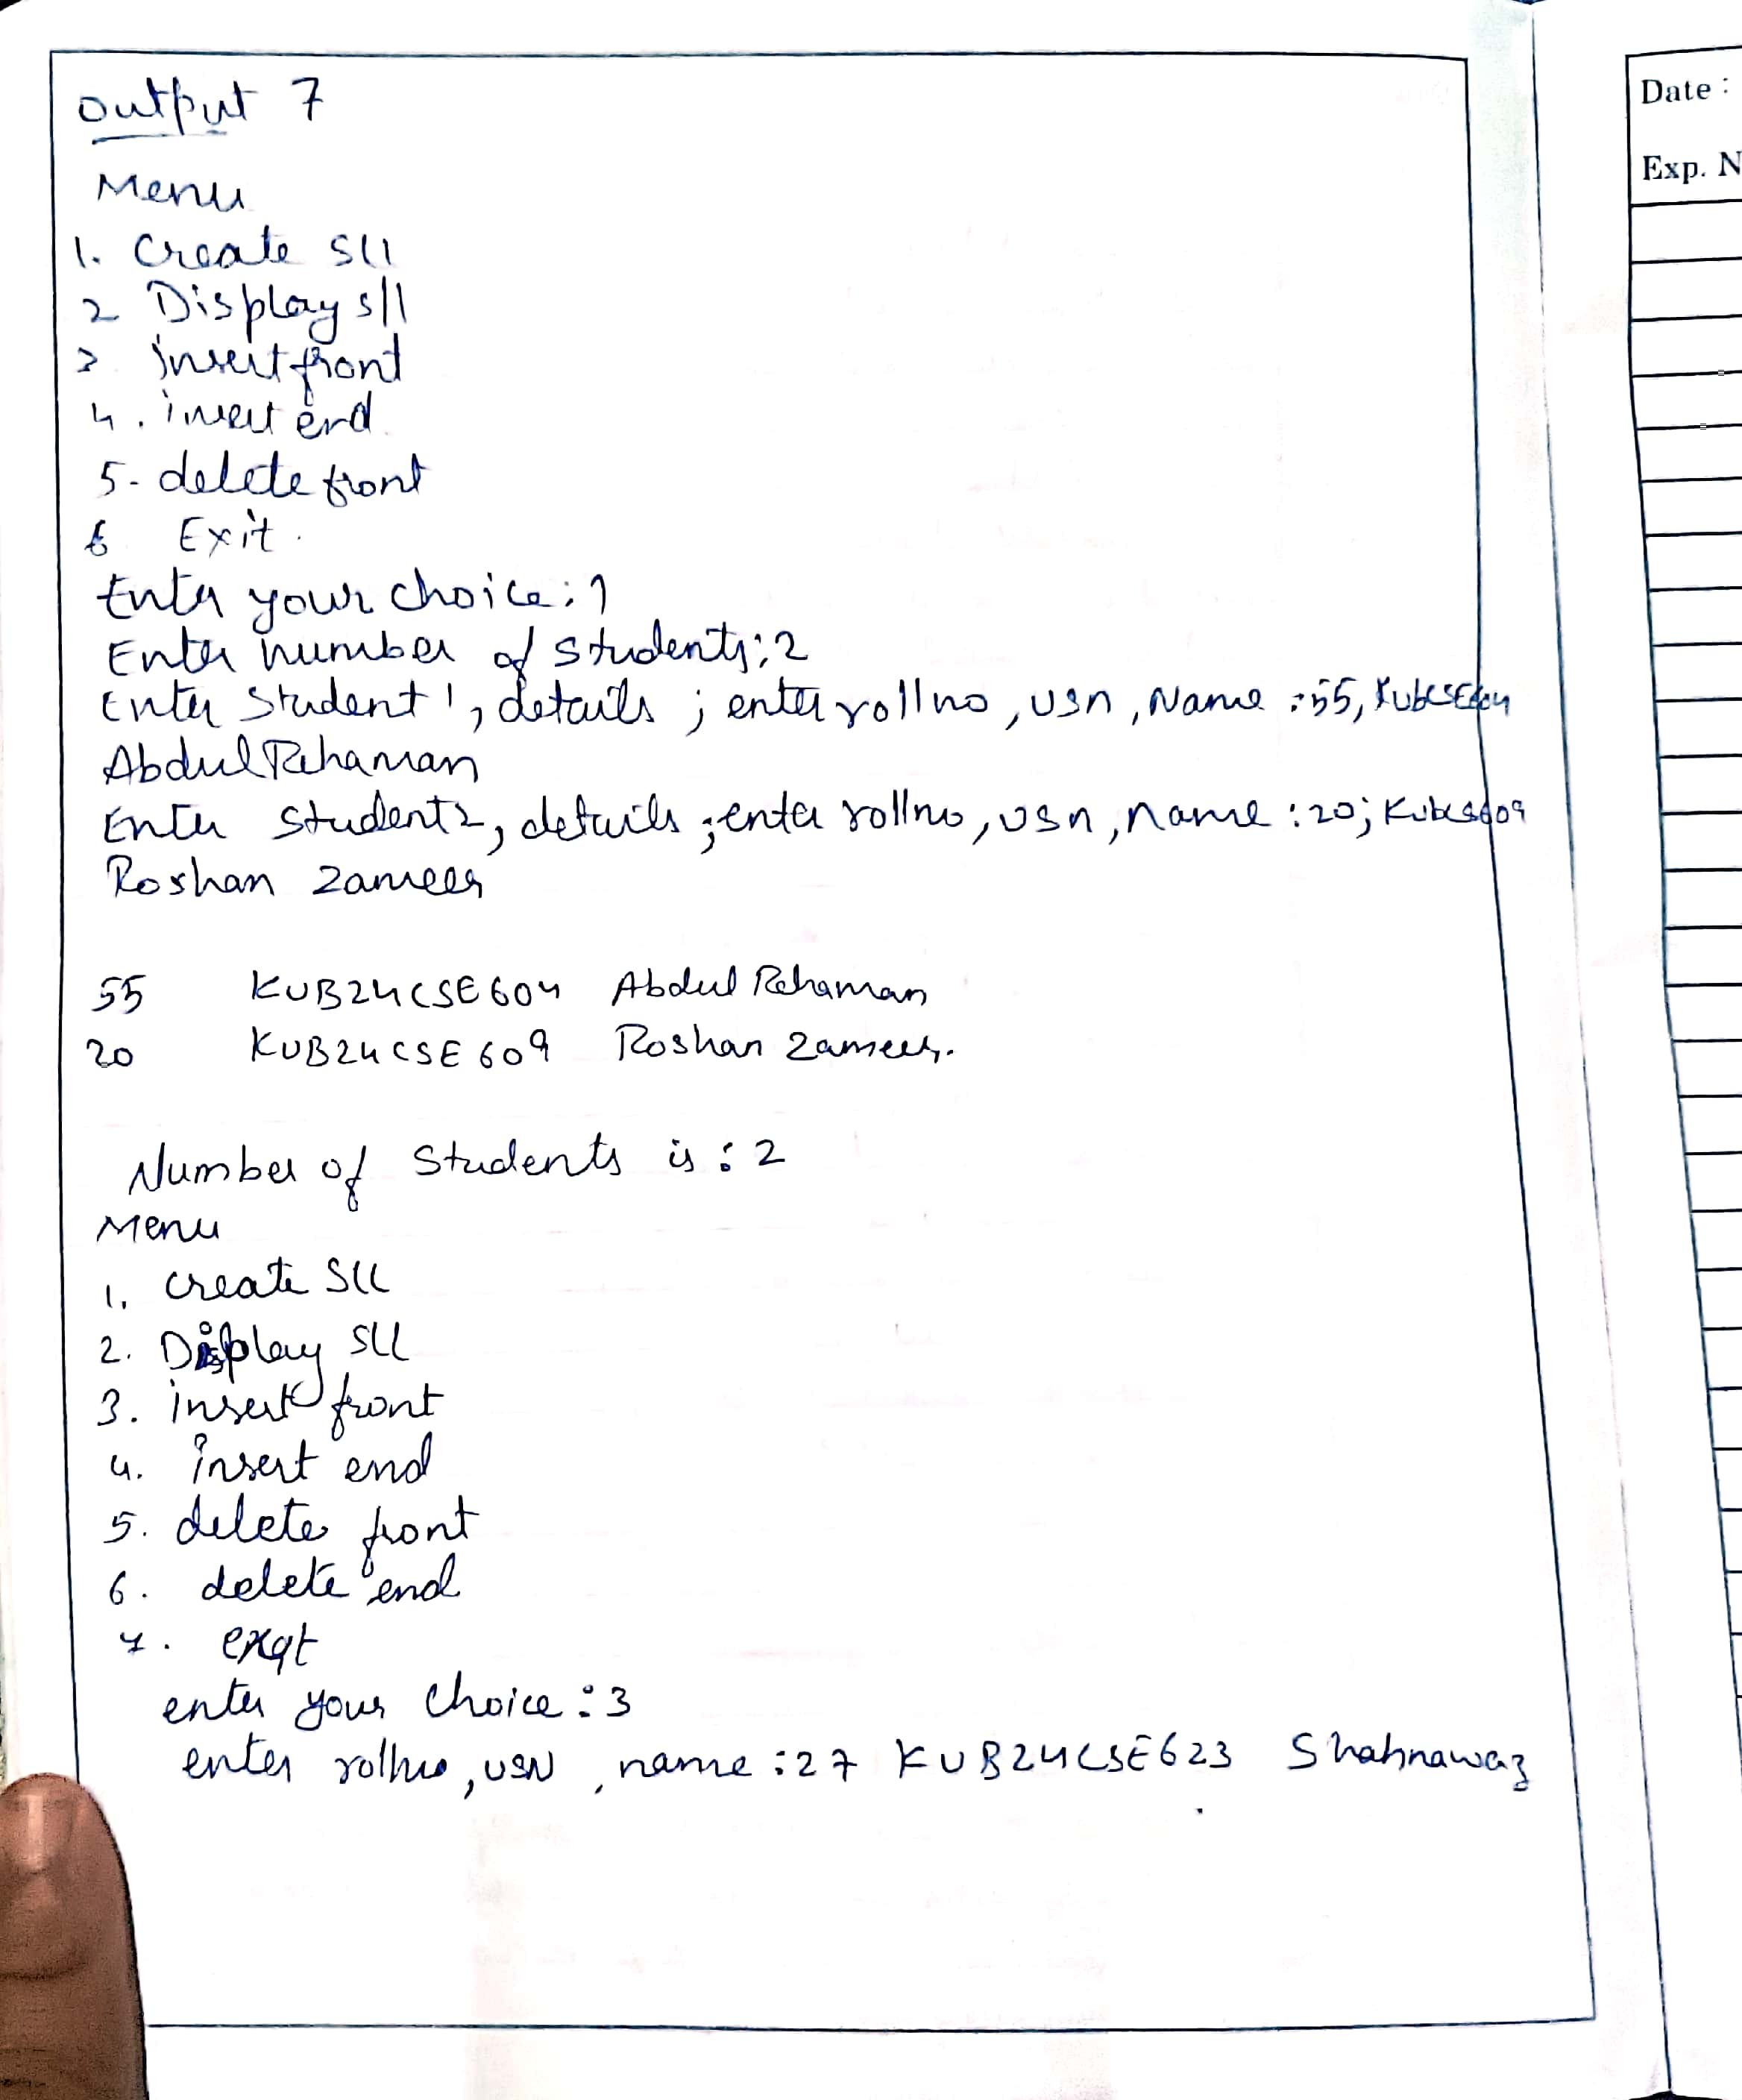 Output 7
Menu
1. Create Sll
2 Display sll
3 insert front
4. insert end
5- delete front
6 Exit.
Enter your choice: 1
Enter number of students: 2
Enter Student 1, details ; enter rollno, usn, Name : 55,
Abdul Rehaman
Enter student 2, details ; enter rollno, usn, name : 20;
Roshan Zameer
55 KUB24CSE604 Abdul Rehaman
20 KUB24CSE609 Roshan Zameer.
Number of Students is : 2
Menu
1. create Sll
2. Display sll
3. insert front
4. insert end
5. delete front
6. delete end
7. exit
enter your choice : 3
enter rollno, usn, name : 27 KUB24CSE623 Shahnawaz
Date :
Exp. N